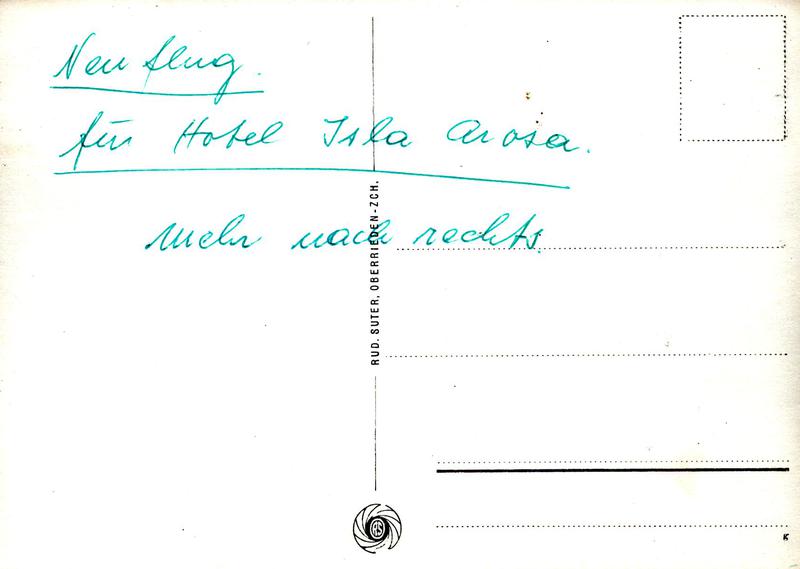 Neu flug.
für Hotel Isla Arosa.
mehr nach rechts.
RUD. SUTER, OBERRIEDEN-ZCH.
RS
K